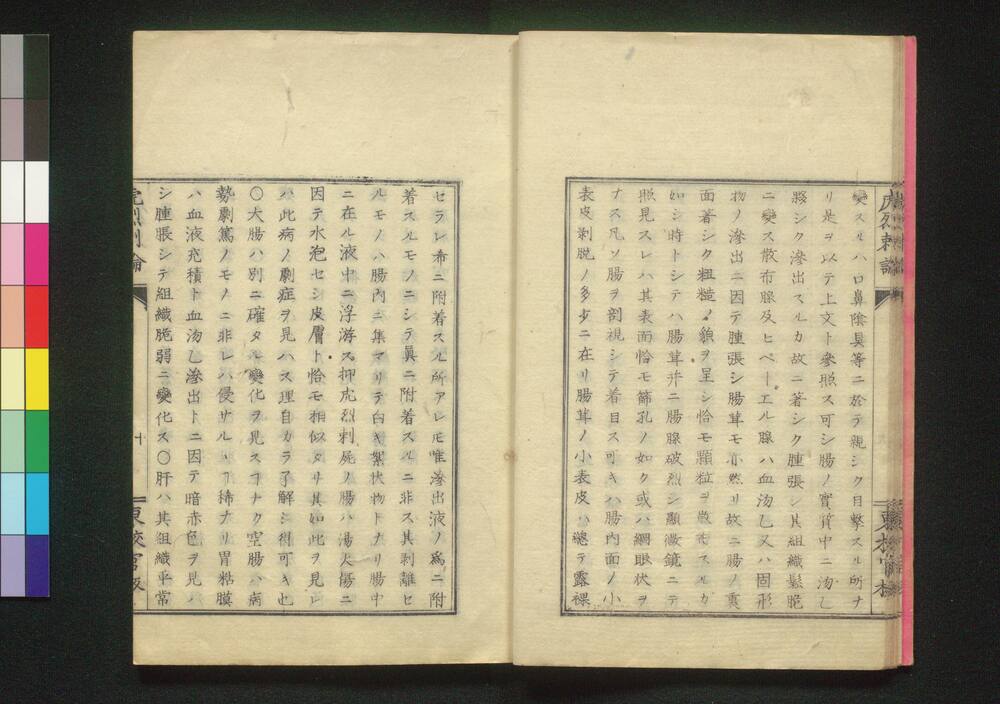 變スルハ口鼻陰具等ニ於テ親シク目擊スル所ナ
リ是ヲ以テ上文ト參照ス可シ腸ノ實質中ニ沕乚
夥シク滲出スルカ故ニ著シク腫張シ其組織鬆脆
ニ變ス散布腺及ヒペーエル腺ハ血沕乚又ハ固形
物ノ滲出ニ因テ腫張シ腸茸モ亦然リ故ニ腸ノ裏
面著シク粗糙ノ貌ヲ呈シ恰モ顆粒ヲ散布スルカ
如シ時トシテハ腸茸幷ニ腸腺破烈シ顯微鏡ニテ
照見スレハ其表面恰モ篩孔ノ如ク或ハ網眼狀ヲ
ナス凡ソ腸ヲ剖視シテ着目ス可キハ腸內面ノ小
表皮剥脫ノ多少ニ在リ腸茸ノ小表皮ハ總テ露裸
虎烈剌論
東校官板
セラレ布ニ附着スル所アレ𪜈唯滲出液ノ爲ニ附
着スルモノニシテ眞ニ附着スルニ非ス其剥離セ
ルモノハ腸內ニ集マリテ白キ絮狀物トナリ腸中
ニ在ル液中ニ浮游ス抑虎烈刺屍ノ腸ハ湯火傷ニ
因テ水泡セシ皮膚ト恰モ相似タリ其如此ヲ見レ
ハ此病ノ劇症ヲ見ハス理自カラ了解シ得可キ也
〇大腸ハ別ニ確タル變化ヲ見スヿナク空腸ハ病
勢劇篤ノモノニ非レハ侵サルヽヿ稀ナリ胃粘膜
ハ血液充積ト血沕乚滲出トニ因テ暗赤色ヲ見ハ
シ腫脹シテ組織脆弱ニ變化ス〇肝ハ其組織平常
虎烈剌論
十
東校官板